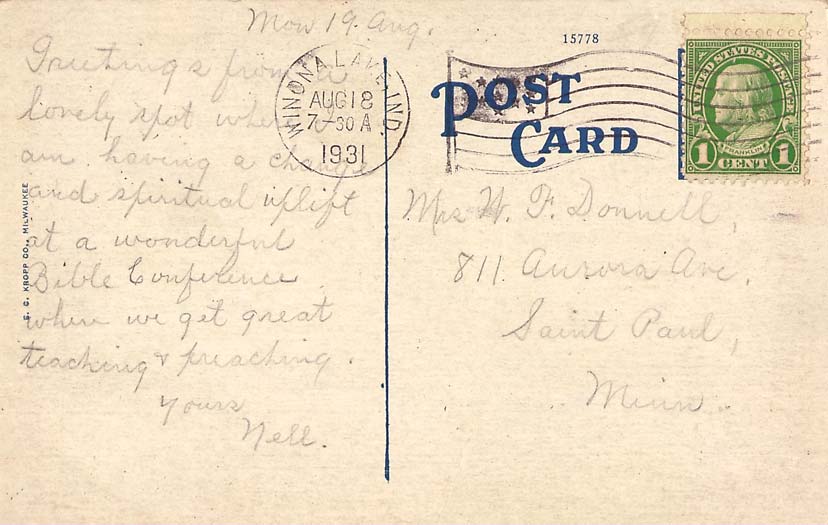 Mon 19 Aug.
Greetings from a
lovely spot where I
am having a change
and spiritual uplift
at a wonderful
Bible Conference
where we get great
teaching & preaching.
Yours
Nell.
E. C. KROPP CO., MILWAUKEE
WINONA LAKE, IND.
AUG 18
7-30 A
1931
15778
POST
CARD
UNITED STATES POSTAGE
FRANKLIN
1 CENT 1
Mrs W. F. Donnell,
811 Aurora Ave.
Saint Paul,
Minn.